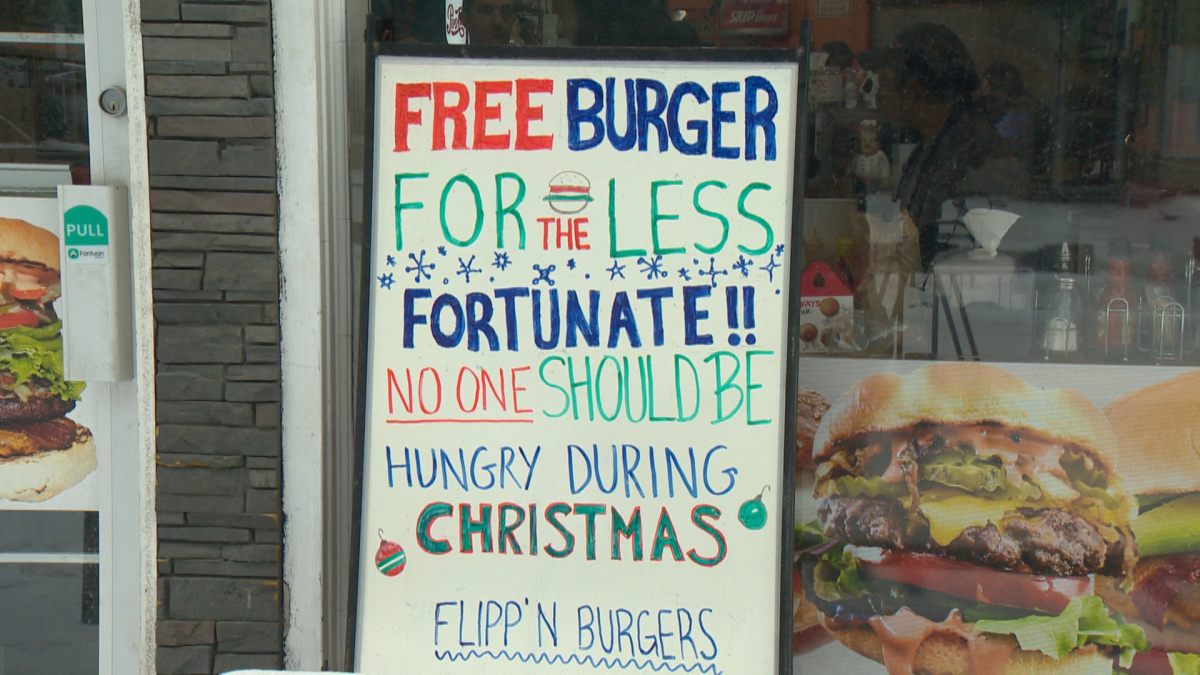 FREE BURGER
FOR THE LESS
FORTUNATE!!
NO ONE SHOULD BE
HUNGRY DURING
CHRISTMAS
FLIPP'N BURGERS
PULL
Fantuan
SKIP
WAYS